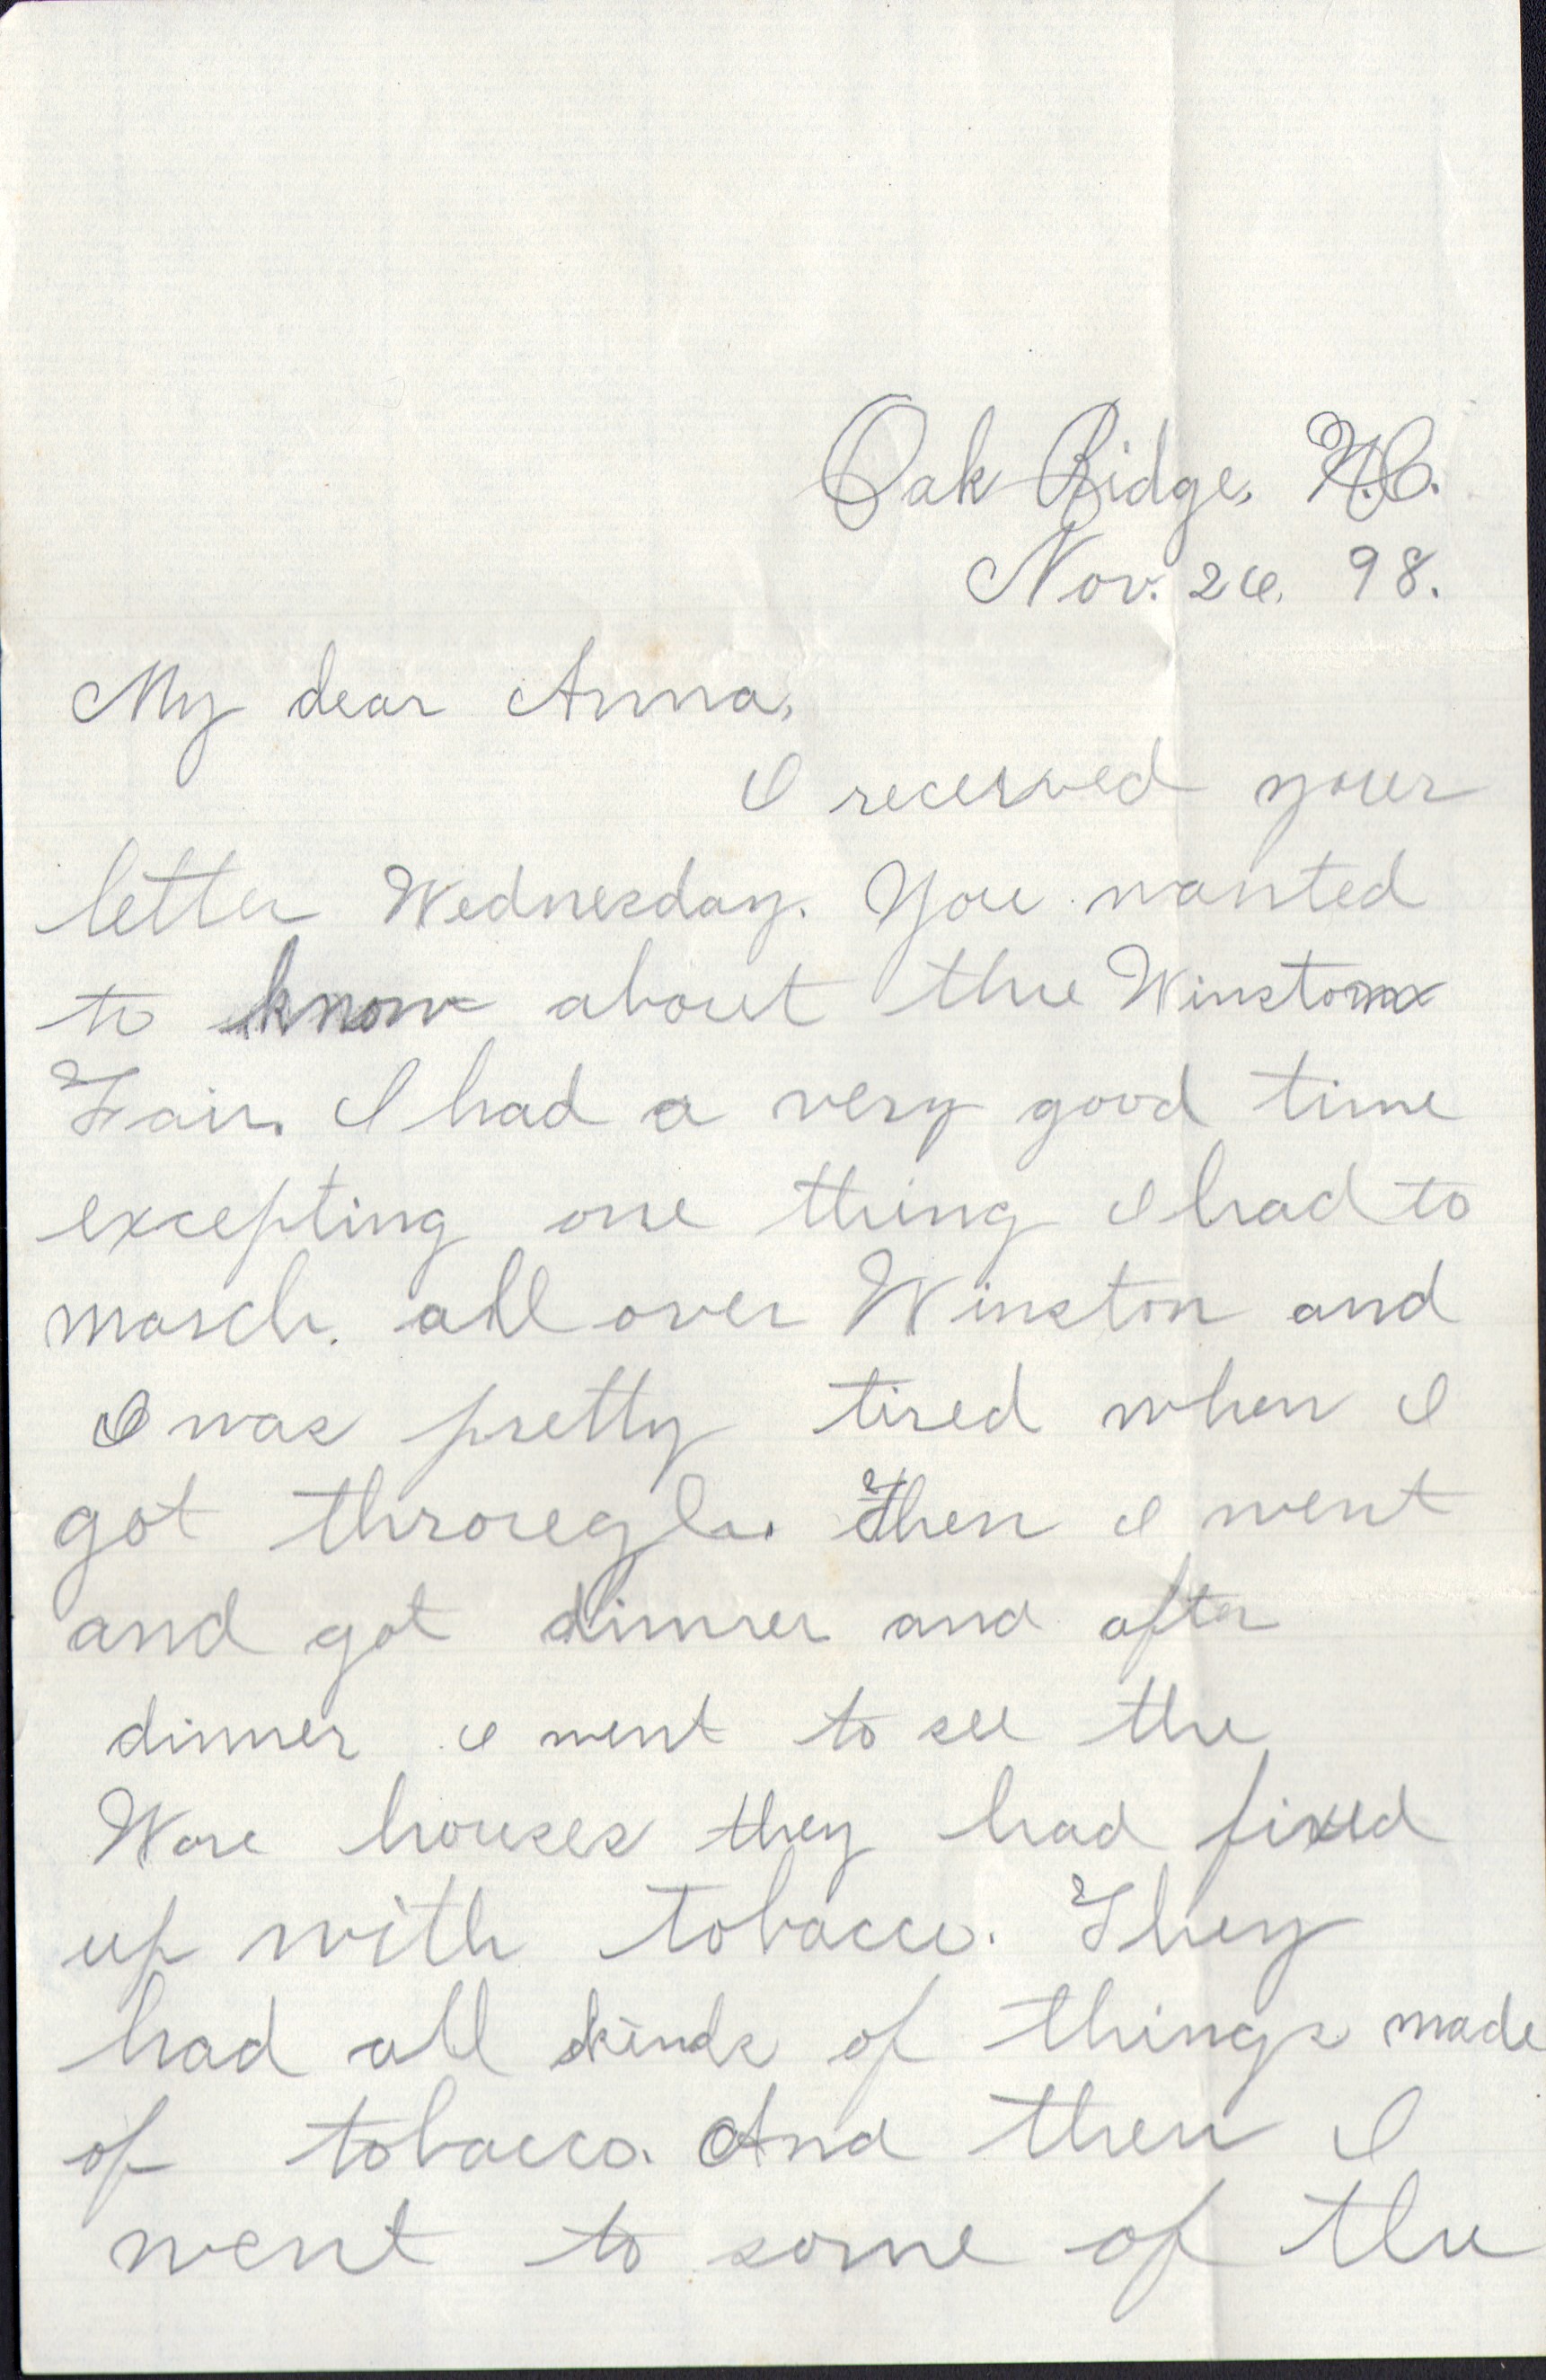 Oak Ridge, N.C.
Nov. 26. 98.
My dear Anna,
I received your
letter Wednesday. You wanted
to know about the Winston
Fair. I had a very good time
excepting one thing I had to
march. all over Winston and
I was pretty tired when I
got through. Then I went
and got dinner and after
dinner I went to see the
Ware houses they had fixed
up with tobacco. They
had all kinds of things made
of tobacco. And then I
went to some of the